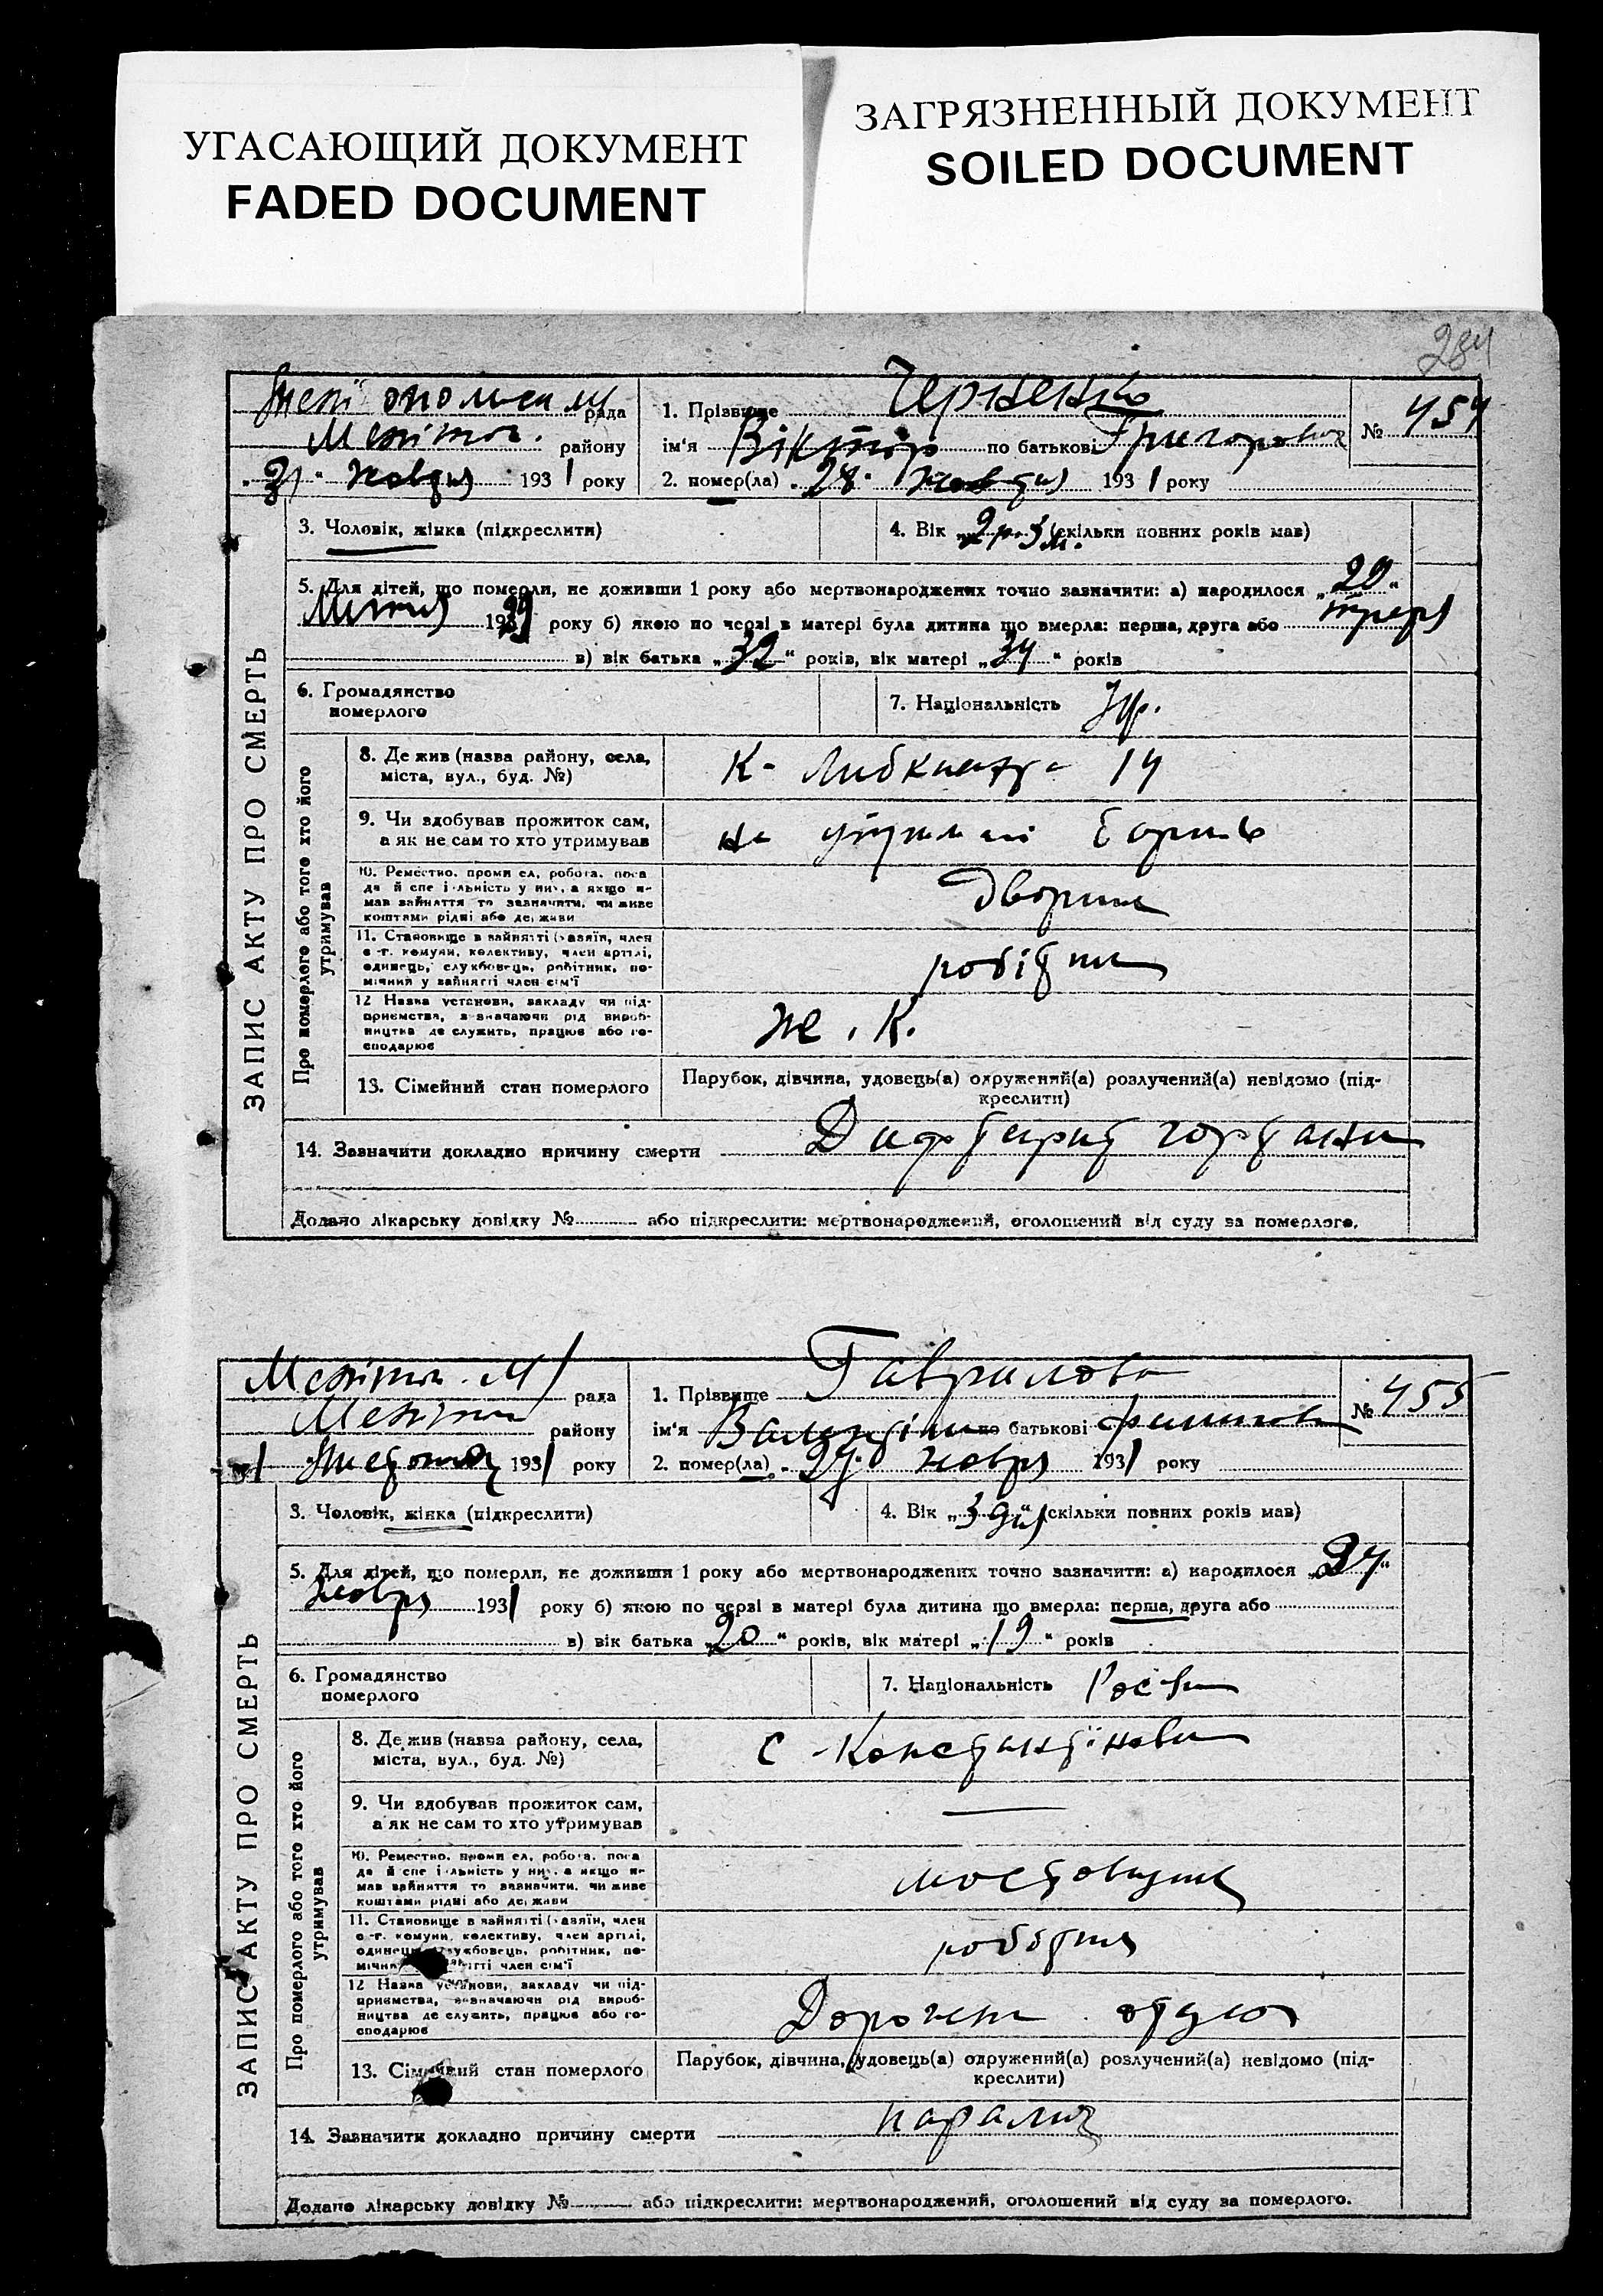 УГАСАЮЩИЙ ДОКУМЕНТ
FADED DOCUMENT
ЗАГРЯЗНЕННЫЙ ДОКУМЕНТ
SOILED DOCUMENT
284
ЗАПИС АКТУ ПРО СМЕРТЬ
рада
Меліто. району
1931 року
1. Прізвище Черненко
ім'я Віктор по батькові Григорович
2. помер(ла) „28" 1931 року
№ 454
3. Чоловік, жінка (підкреслити)
4. Вік „2 р. 3 м. (скільки повних років мав)
5. Для дітей, що померли, не доживши 1 року або мертвонароджених точно зазначити: а) народилося „20"
1929 року б) якою по черзі в матері була дитина що вмерла: перша, друга або
в) вік батька „32" років, вік матері „34" років
6. Громадянство
померлого
7. Національність Укр.
Про померлого або того хто його
утримував
8. Де жив (назва району, села,
міста, вул., буд. №)
К- Либкнехта 14
9. Чи здобував прожиток сам,
а як не сам то хто утримував
на
10. Ремество, промисел, робота, поса
да й спеціальність у них, а якщо не
мав зайняття то зазначити, чи живе
коштами рідні або держави
Дворник
11. Становище в зайнятті (хазяїн, член
с.-г. комуни, колективу, член артілі,
одинець, службовець, робітник, по-
мічний у зайнятті член сім'ї
робітник
12 Назва установи, закладу чи під-
приємства, зазначаючи рід вироб-
ництва де служить, працює або го-
сподарює
Ж. К.
13. Сімейний стан померлого
Парубок, дівчина, удовець(а) одружений(а) розлучений(а) невідомо (під-
креслити)
14. Зазначити докладно причину смерти Дифтерит гортани
Додано лікарську довідку № або підкреслити: мертвонароджений, оголошений від суду за померлого.
ЗАПИС АКТУ ПРО СМЕРТЬ
Меліто. М/ рада
Меліто району
1931 року
1. Прізвище Гаврилова
ім'я Валентина по батькові
2. помер(ла) „27" 1931 року
№ 455
3. Чоловік, жінка (підкреслити)
4. Вік „3 дні" (скільки повних років мав)
5. Для дітей, що померли, не доживши 1 року або мертвонароджених точно зазначити: а) народилося „24"
1931 року б) якою по черзі в матері була дитина що вмерла: перша, друга або
в) вік батька „20" років, вік матері „19" років
6. Громадянство
померлого
7. Національність
Про померлого або того хто його
утримував
8. Де жив (назва району, села,
міста, вул., буд. №)
с - Константіновка
9. Чи здобував прожиток сам,
а як не сам то хто утримував
10. Ремество, промисел, робота, поса
да й спеціальність у них, а якщо не
мав зайняття то зазначити, чи живе
коштами рідні або держави
мостовщик
11. Становище в зайнятті (хазяїн, член
с.-г. комуни, колективу, член артілі,
одинець, службовець, робітник, по-
мічний у зайнятті член сім'ї
робітник
12 Назва установи, закладу чи під-
приємства, зазначаючи рід вироб-
ництва де служить, працює або го-
сподарює
13. Сімейний стан померлого
Парубок, дівчина, удовець(а) одружений(а) розлучений(а) невідомо (під-
креслити)
14. Зазначити докладно причину смерти паралич
Додано лікарську довідку № або підкреслити: мертвонароджений, оголошений від суду за померлого.